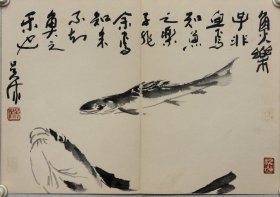 魚樂
子非
魚焉
知魚
之樂
子非
余焉
知余
不知
魚之
樂也